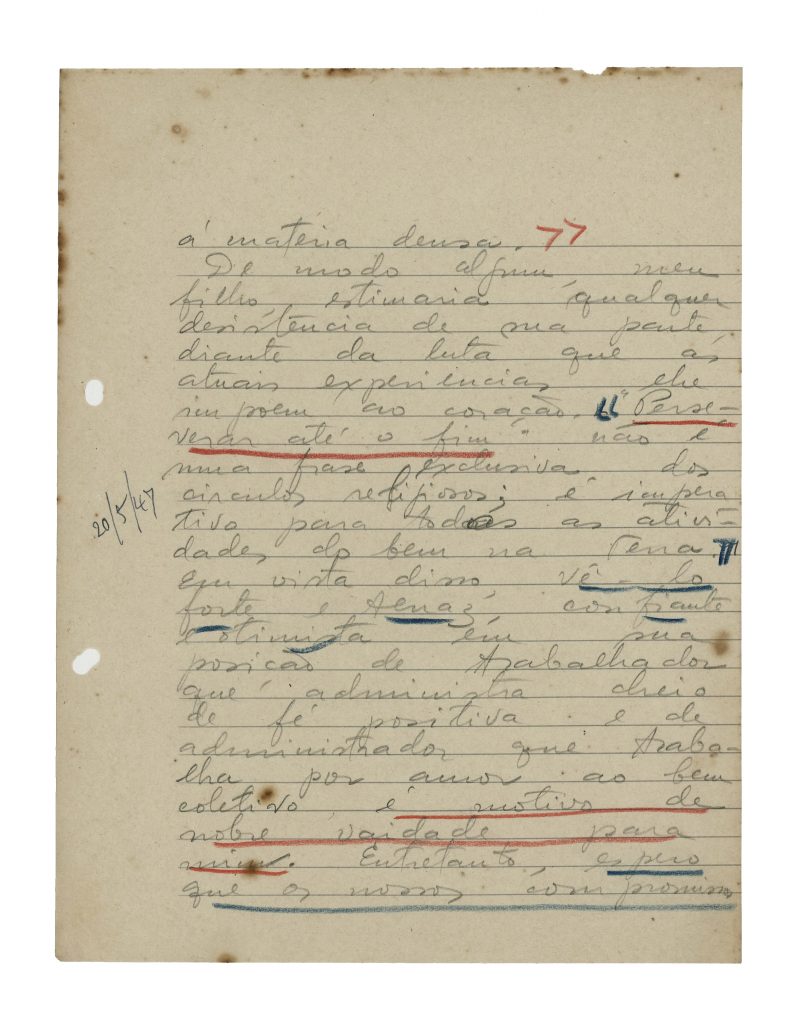 á matéria densa. ”
De modo algum, meu
filho, estimaria qualquer
desistência de sua parte,
diante da luta que as
atuais experiencias lhe
impoem ao coração. “"Perse-
verar até o fim" não é
uma frase exclusiva dos
circulos religiosos; é impera
tivo para todas as ativi-
dades do bem na Terra. ”
20/5/47
Em vista disso, vê-lo
forte e tenaz, confiante
e otimista em sua
posição de trabalhador
que administra cheio
de fé positiva e de
administrador que traba-
lha por amor ao bem
coletivo, é motivo de
nobre vaidade para
mim. Entretanto, espero
que os nossos compromissos